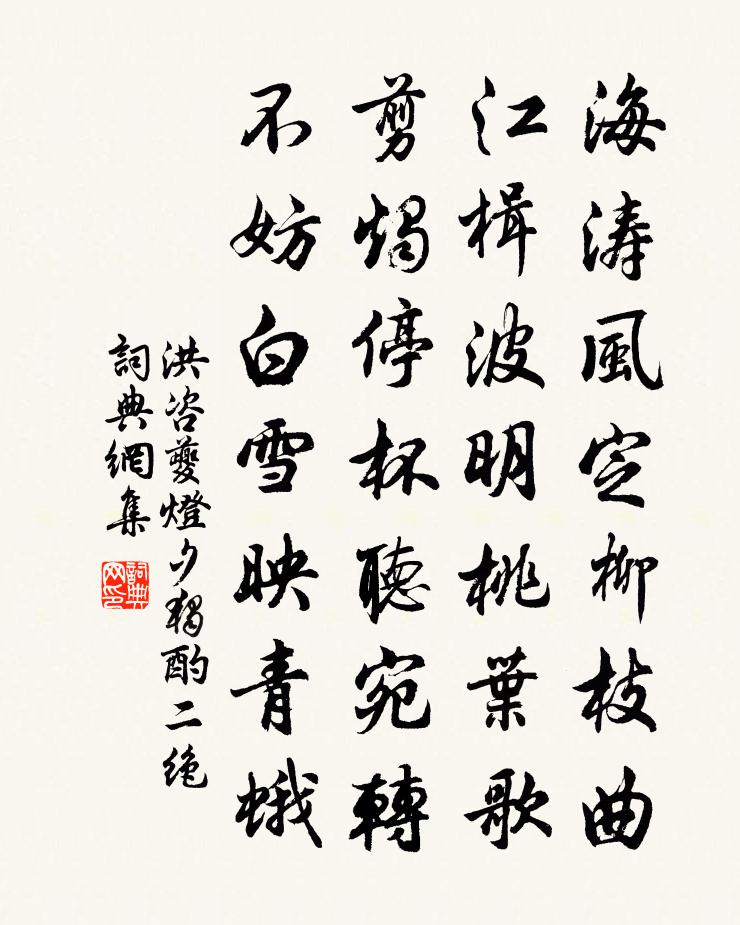 海濤風定柳枝曲
江楫波明桃葉歌
剪燭停杯聽宛轉
不妨白雪映青蛾
洪咨夔燈夕獨酌二絕
詞典網集
詞典网印